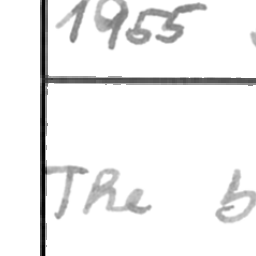 1955
The b